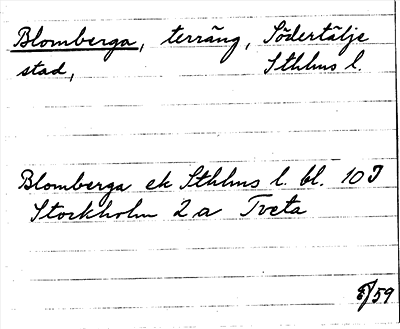 Blomberga, terräng, Södertälje
stad, Sthlms l.
Blomberga ek Sthlms l. bl. 10J
Stockholm 2a Tveta
/59